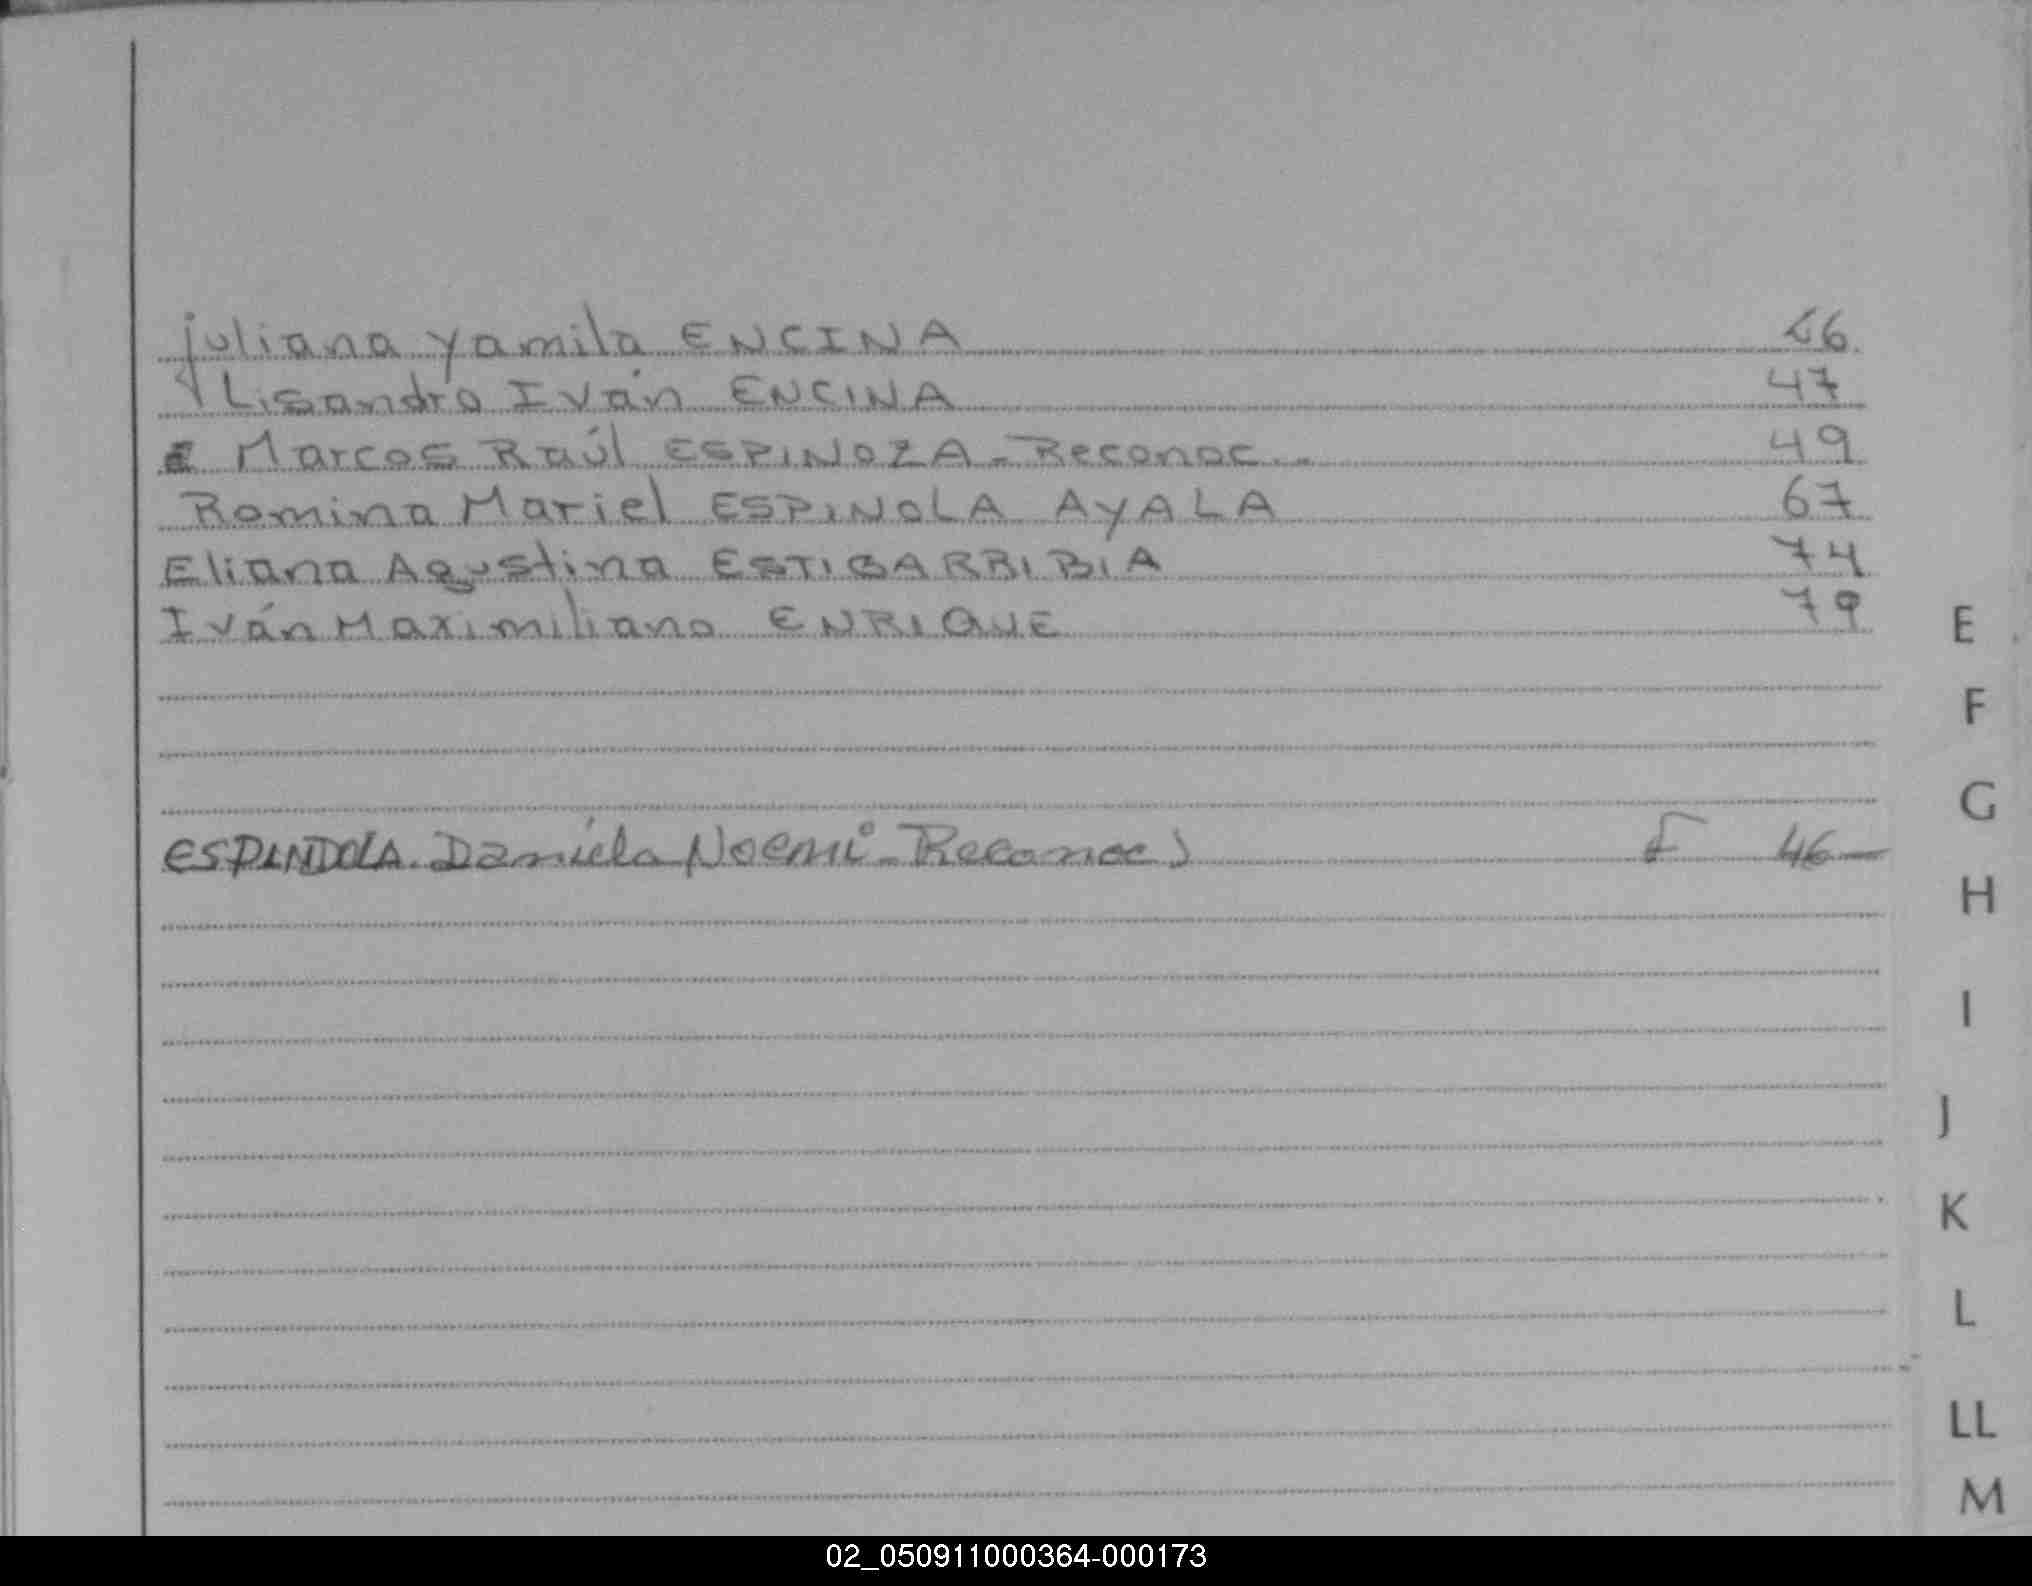 Juliana Yamila ENCINA 46
Lisandro Iván ENCINA 47
E Marcos Raúl ESPINOZA - Reconoc.. 49
Romina Mariel ESPINOLA AYALA 67
Eliana Agustina ESTIGARRIBIA 74
Iván Maximiliano ENRIQUE 79
ESPINDOLA. Daniela Noemi - Reconoc) F 46
E
F
G
H
I
J
K
L
LL
M
02_050911000364-000173